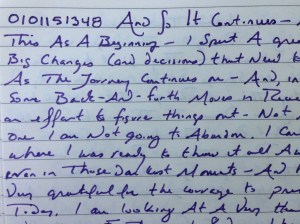 0101151348 And So It Continues -
This As A Beginning - I Spent A grea
Big Changes (and decisions) that New to
As The Journey Continues on - And, in
Some Back-And-forth Moves in Rece
an effort to figure things out - Not
one I am Not going to Abandon. I Can
where I was ready to throw it all Aw
even in Those Darkest Moments - And I
Very grateful for the courage to
Today. I am looking At A Very